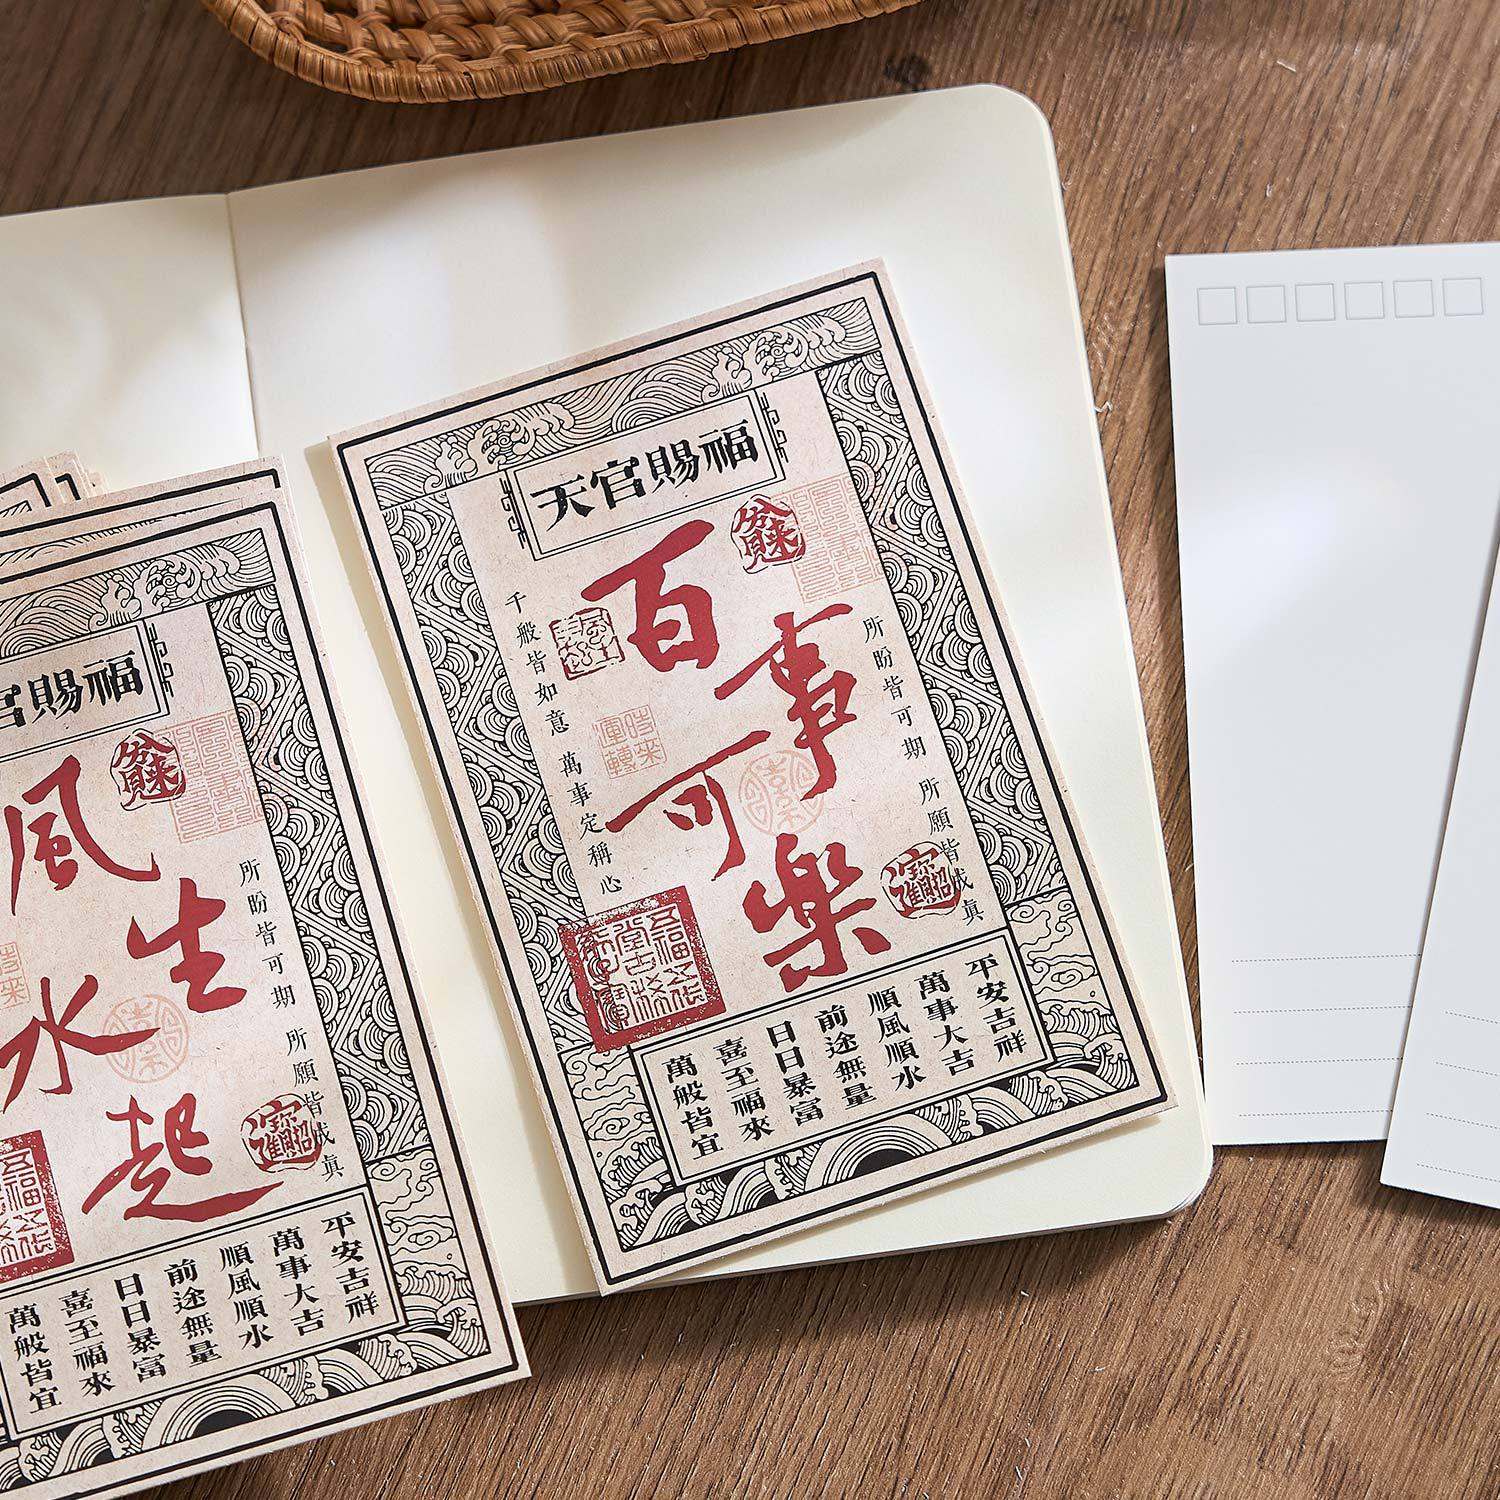 天官賜福
百事可樂
千般皆如意 萬事定稱心
所盼皆可期 所願皆成真
時來運轉
招財進寶
平安吉祥
萬事大吉
順風順水
前途無量
日日暴富
喜至福來
萬般皆宜
官賜福
風生水起
所盼皆可期 所願皆成真
時來
招財進寶
平安吉祥
萬事大吉
順風順水
前途無量
日日暴富
喜至福來
萬般皆宜